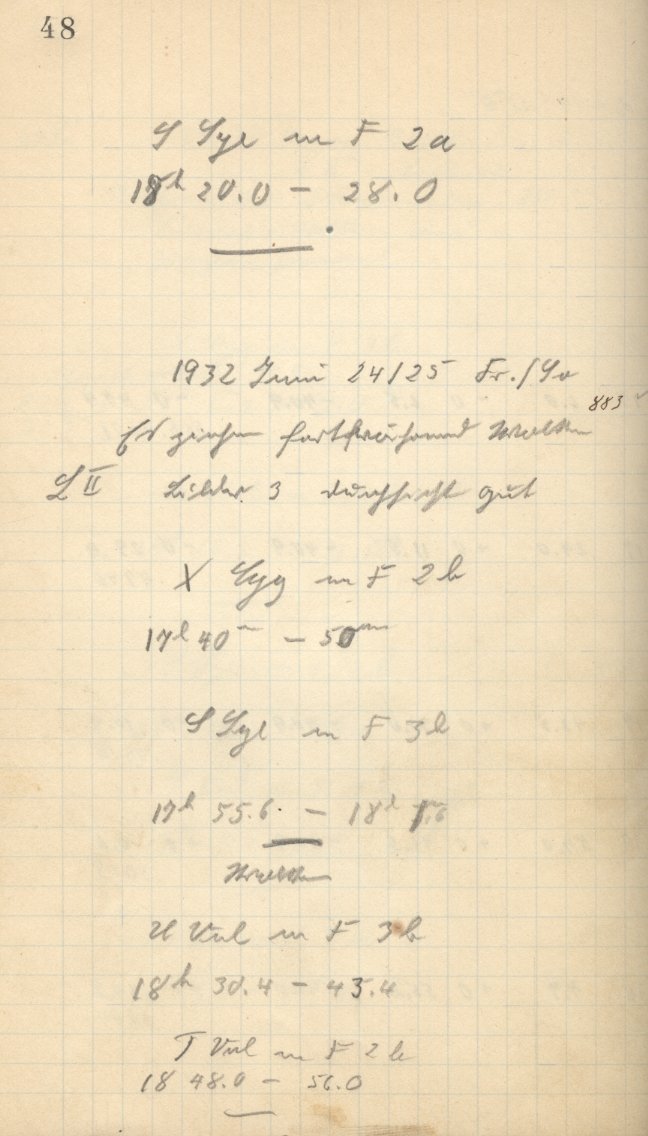 48
S Sge in F 2a
18h 20.0 – 28.0
1932 Juni 24/25 Fr./Sa
883
Es ziehen fortwährend Wolken
L II Bilder 3 Durchsicht gut
X Cyg in F 2b
17h 40m – 50m
S Sge in F 3b
17h 55.6 – 18h
Wolken
U Vul in F 3b
18h 30.4 – 45.4
T Vul in F 2b
18 48.0 – 56.0